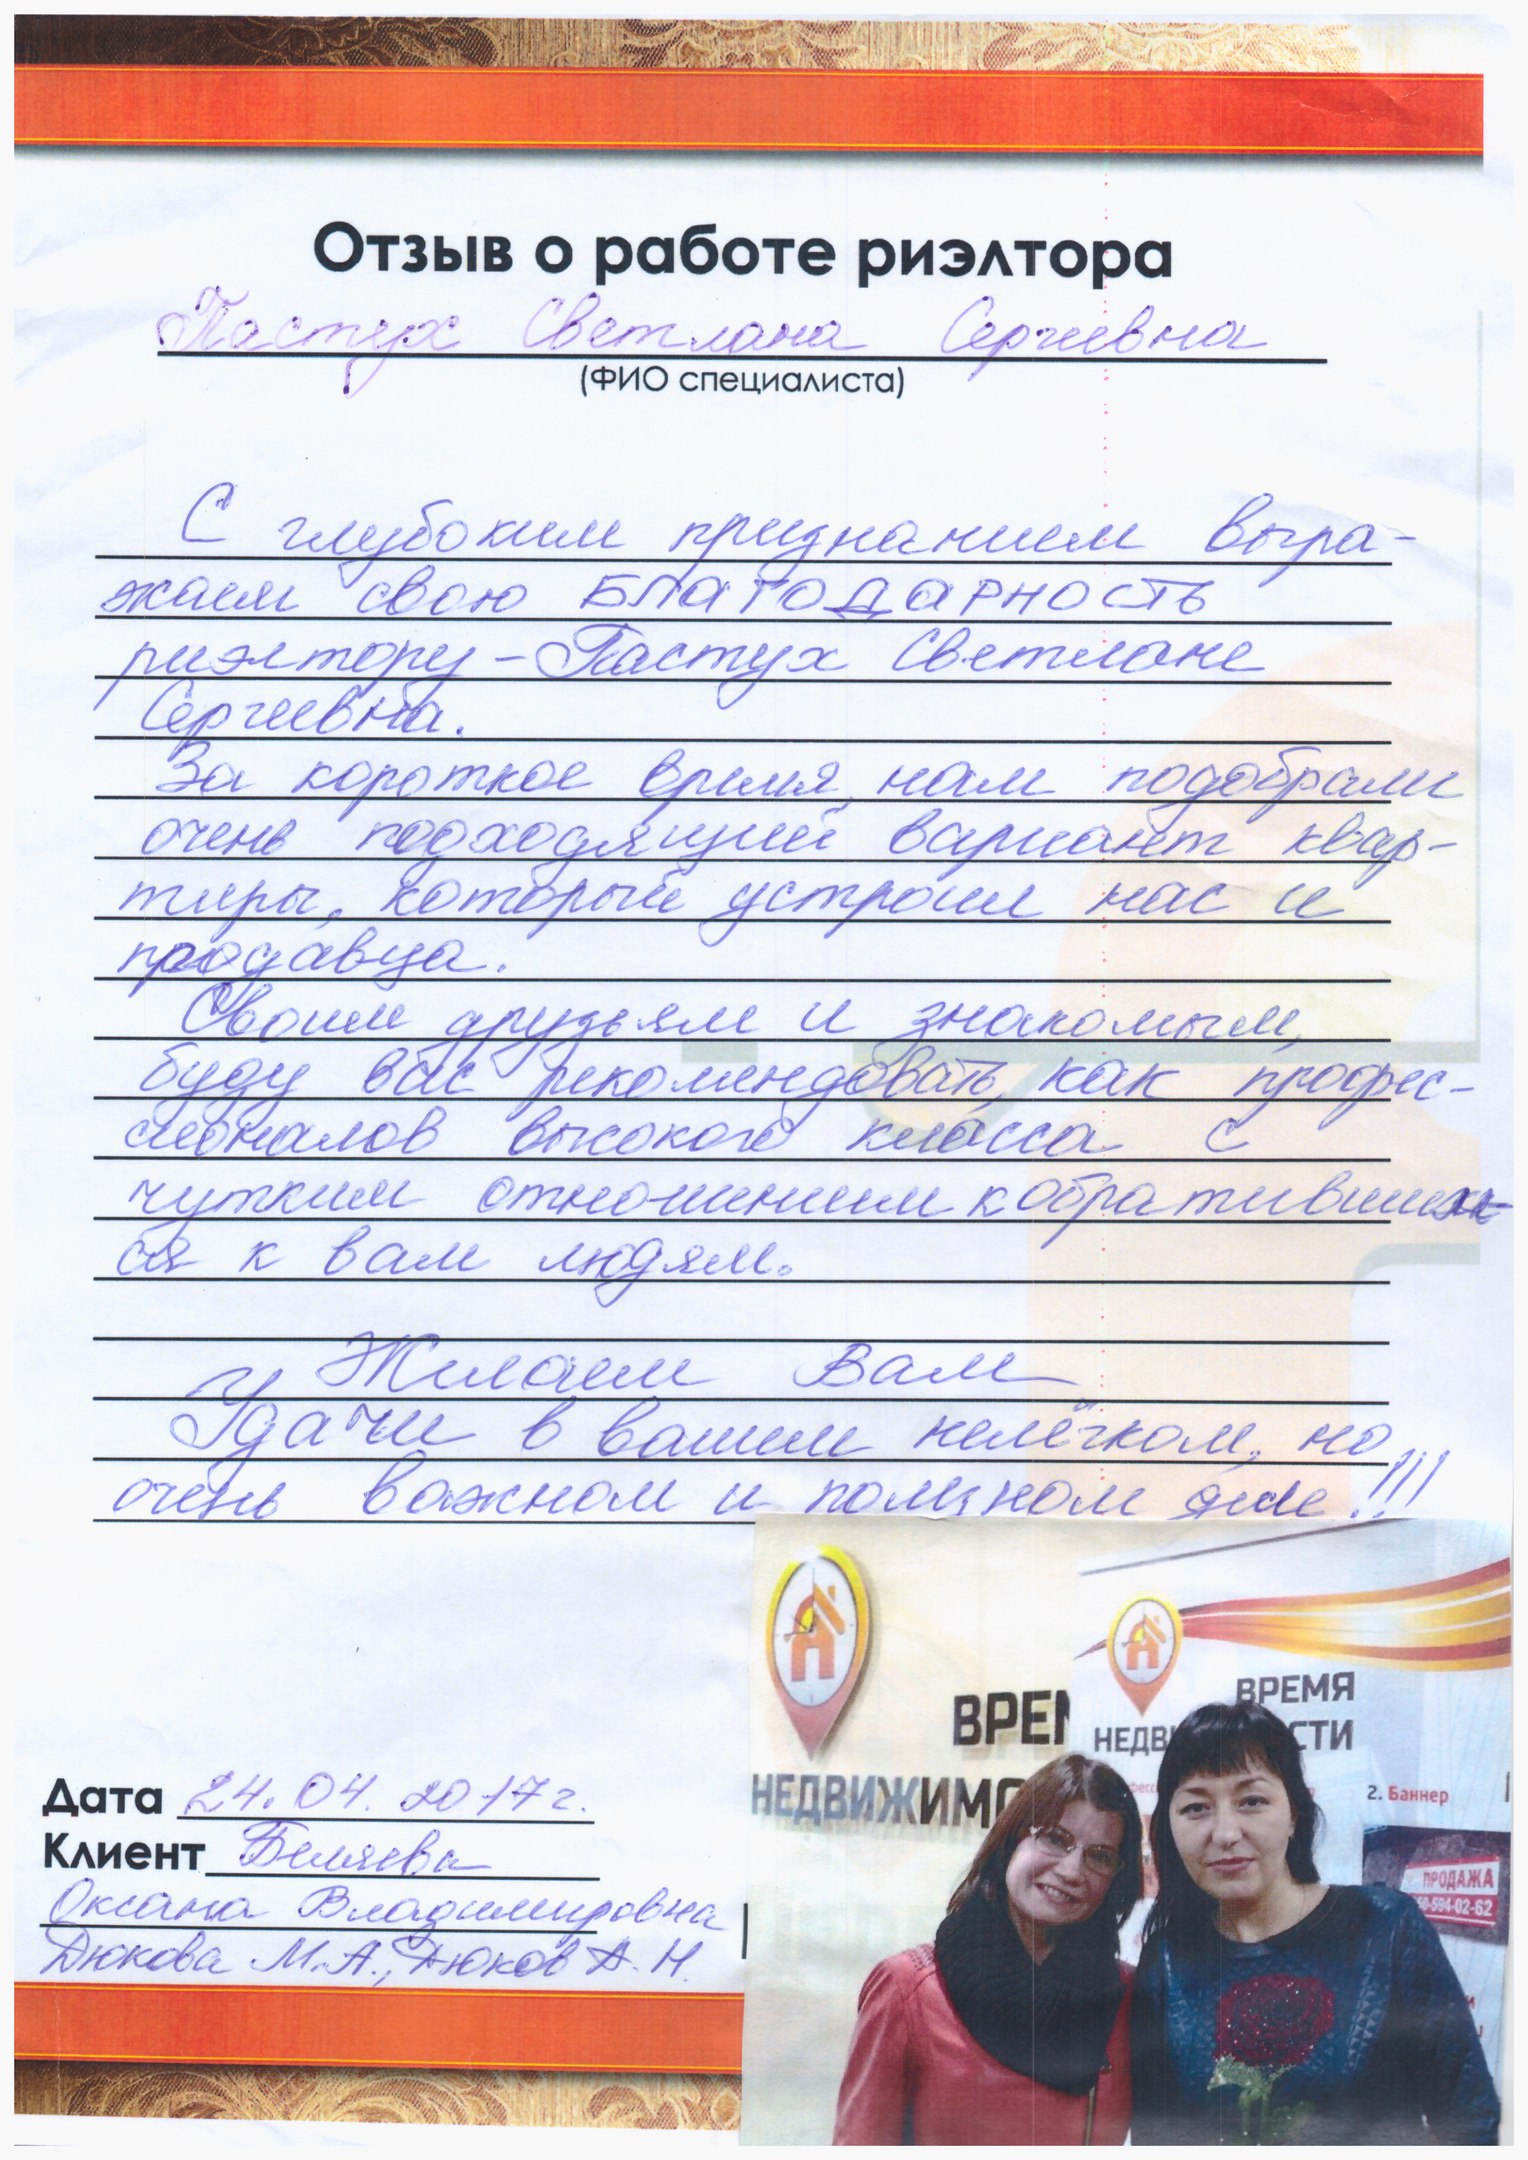 Отзыв о работе риэлтора
Пастух Светлана Сергеевна
(ФИО специалиста)
С глубоким признанием выра-
жаем свою БЛАГОДАРНОСТЬ
риэлтору - Пастух Светлане
Сергеевна.
За короткое время, нам подобрали
очень подходящий вариант квар-
тиры, который устроил нас и
продавца.
Своим друзьям и знакомым,
буду вас рекомендовать, как профес-
сионалов высокого класса с
чутким отношением к обратившихся
ся к вам людям.
Желаем Вам
Удачи в вашем нелёгком, но
очень важном и полезном деле!!!
Дата 24.04.2017г.
Клиент Беляева
Оксана Владимировна
Дюкова М.А., Дюков А.Н.
ВРЕМ
НЕДВИЖИМО
ВРЕМЯ
НЕДВ СТИ
2. Баннер
ПРОДАЖА
50-594-02-62